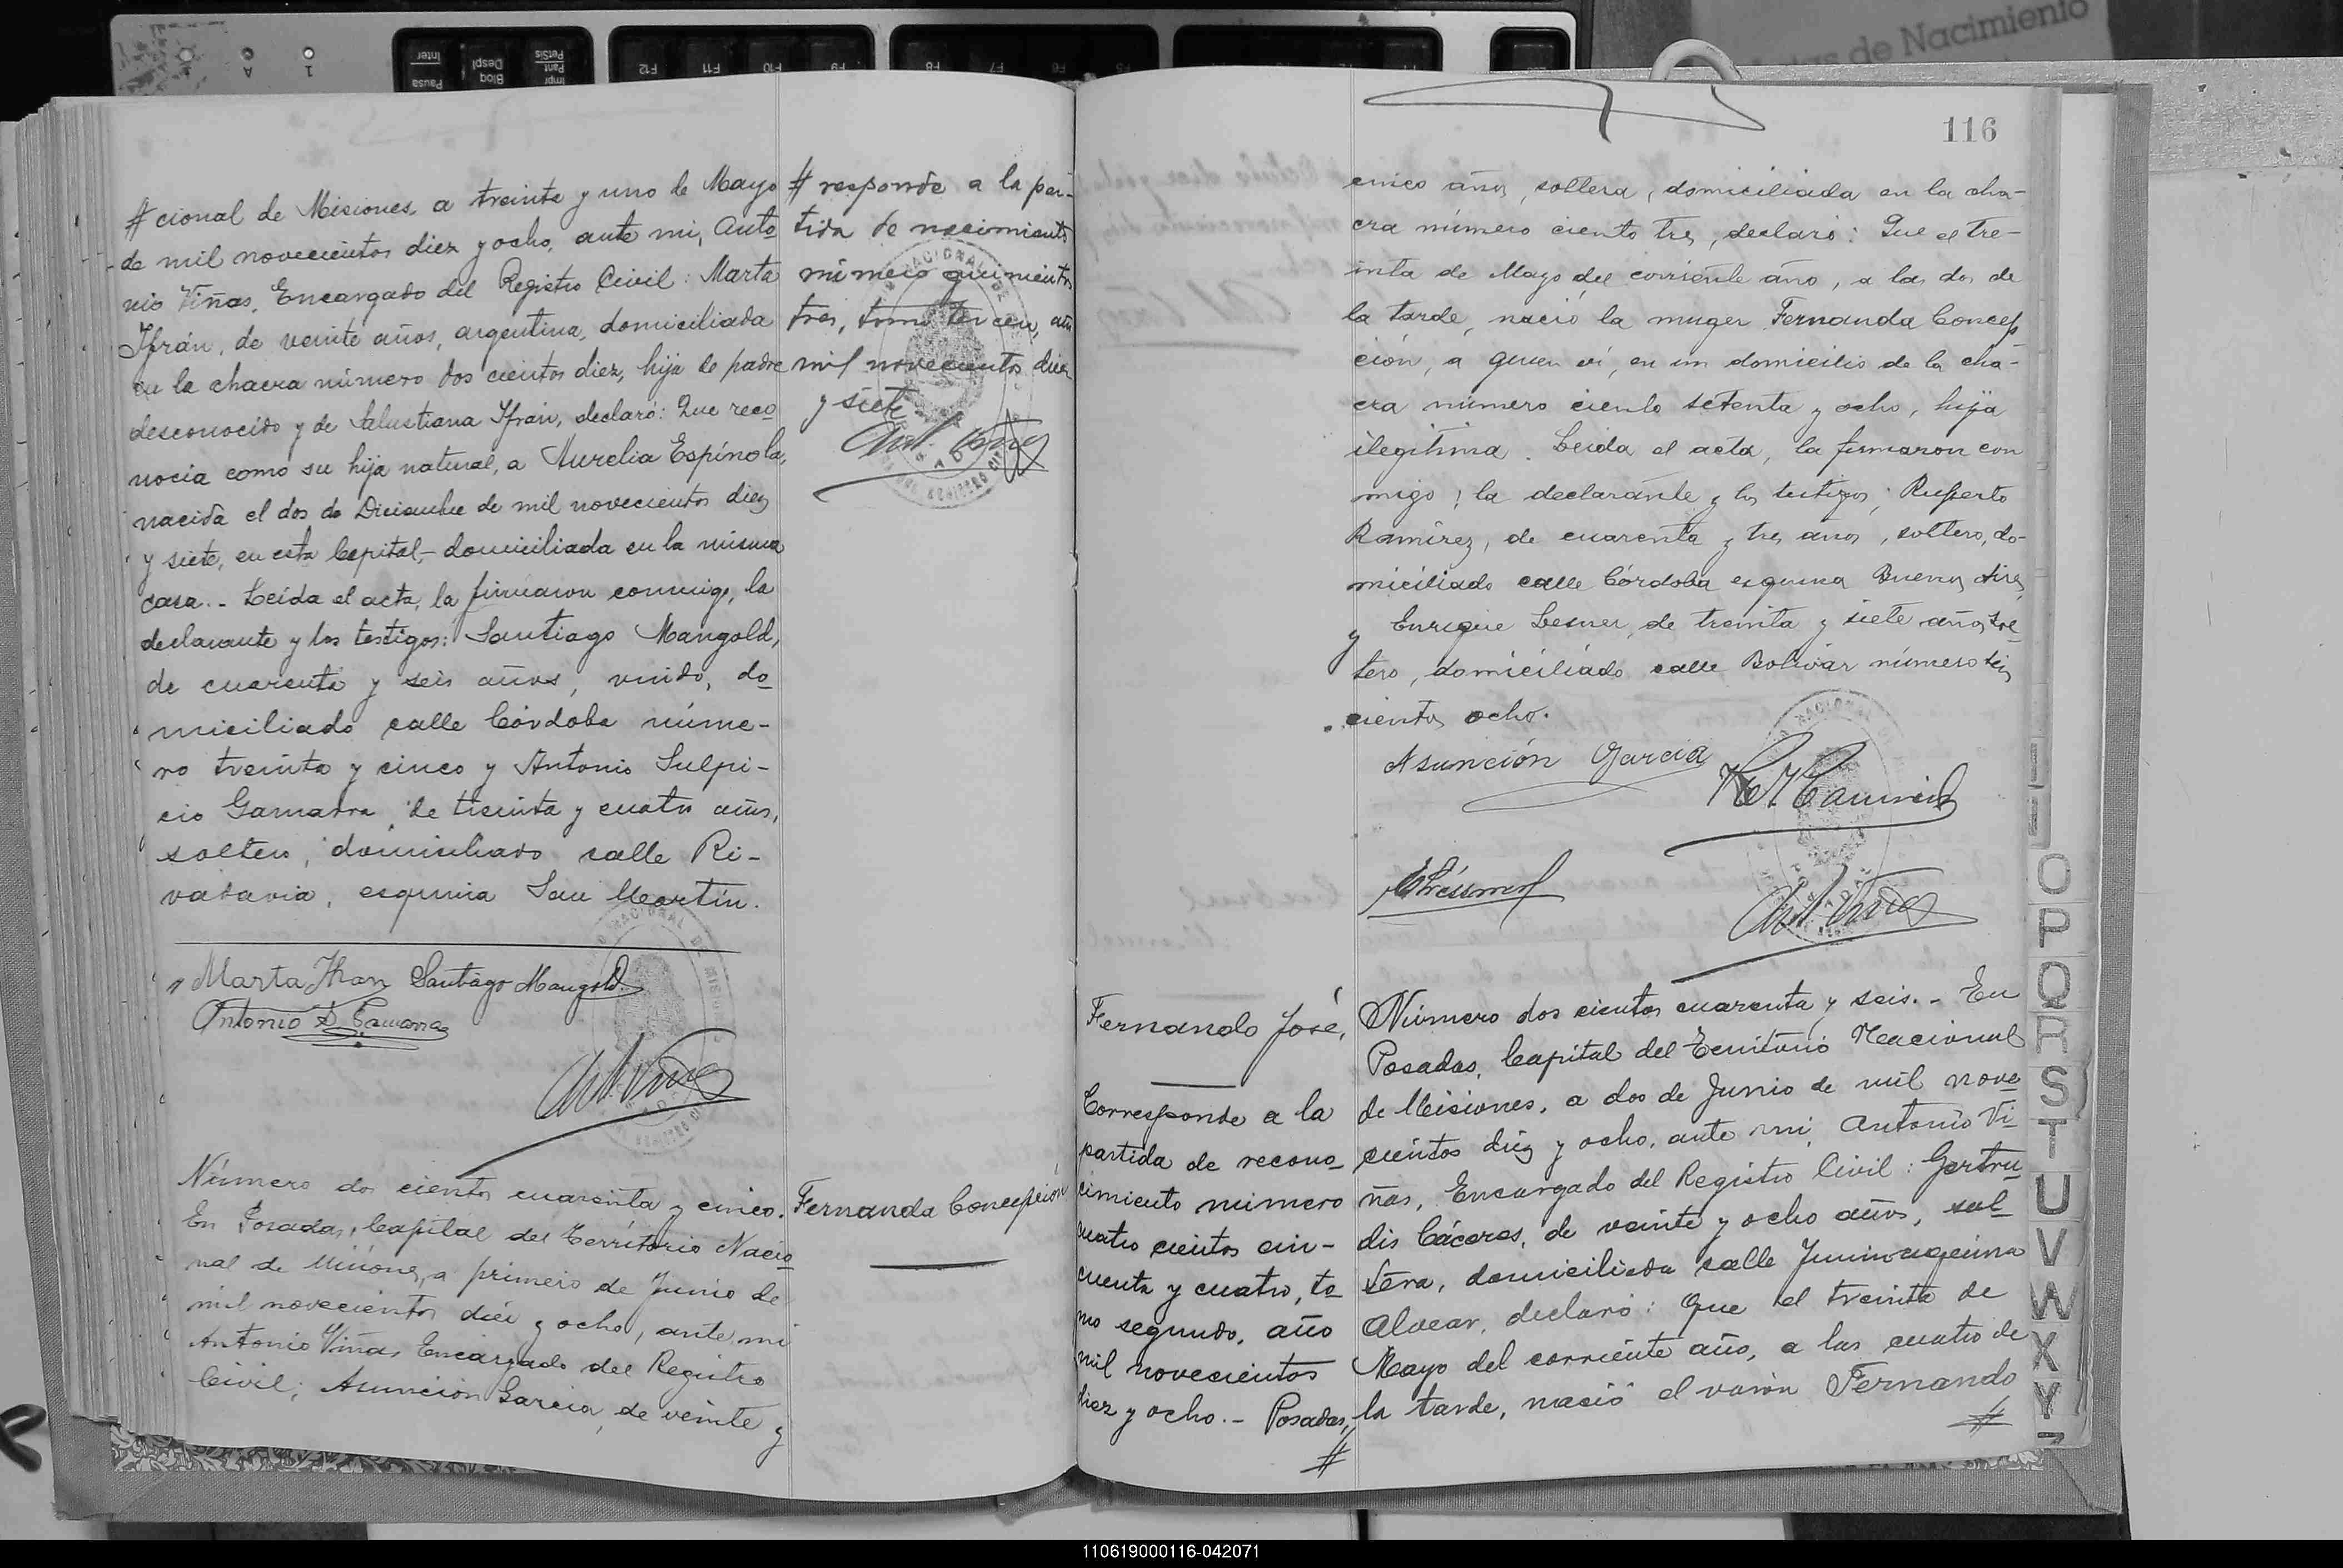 Actas de Nacimiento
# cional de Misiones, a treinta y uno de Mayo
de mil novecientos diez y ocho, ante mi, Anto
nio Viñas, Encargado del Registro Civil: Marta
Ifrán, de veinte años, argentina, domiciliada
en la chacra número dos cientos diez, hija de padre
desconocido y de Salustiana Ifrán, declaró: Que reco
nocía como su hija natural, a Aurelia Espínola,
nacida el dos de Diciembre de mil novecientos diez
y siete, en esta Capital, domiciliada en la misma
casa.- Leída el acta, la firmaron conmigo, la
declarante y los testigos: Santiago Mangold,
de cuarenta y seis años, viudo, do
miciliado calle Córdoba núme-
ro treinta y cinco y Antonio Sulpi-
cio Gamarra, de treinta y cuatro años,
soltero, domiciliado calle Ri-
vadavia, esquina San Martín.
Marta Ifran Santiago Mangold
Antonio S. Gamarra
Ant. Viñas
# responde a la par-
tida de nacimiento
número quinientos
tres, tomo tercero, año
mil novecientos diez
y siete
Ant. Viñas
Número dos cientos cuarenta y cinco.
En Posadas, Capital del Território Nacio
nal de Misiones, a primero de Junio de
mil novecientos diez y ocho, ante mi
Antonio Viñas Encargado del Registro
Civil; Asunción Garcia, de veinte y
Fernanda Concepción
116
cinco años, soltera, domiciliada en la cha-
cra número ciento tres, declaró: Que el tre-
inta de Mayo del corriente año, a las dos de
la tarde, nació la muger Fernanda Concep
ción, a quien vi, en un domicilio de la cha-
cra número ciento setenta y ocho, hija
ilegítima. Leida el acta, la firmaron con
migo; la declarante y los testigos; Ruperto
Ramírez, de cuarenta y tres años, soltero, do-
miciliado calle Córdoba esquina Buenos Aires
y Enrique de treinta y siete años, sol
tero, domiciliado calle Bolívar número seis
cientos ocho.
Asunción Garcia
Ant. Viñas
Fernando José,
Corresponde a la
partida de recono-
cimiento número
cuatro cientos cin-
cuenta y cuatro, to
mo segundo, año
mil novecientos
diez y ocho.- Posadas,
#
Número dos cientos cuarenta y seis.- En
Posadas, Capital del Territorio Nacional
de Misiones, a dos de Junio de mil nove
cientos diez y ocho, ante mi, Antonio Vi
ñas, Encargado del Registro Civil: Gertru
dis Cáceres, de veinte y ocho años, sol
tera, domiciliada calle Junin esquina
Alvear, declaró: Que el treinta de
Mayo del corriente año, a las cuatro de
la tarde, nació el varón Fernando
#
O
P
Q
R
S
T
U
V
W
X
Y
Z
110619000116-042071